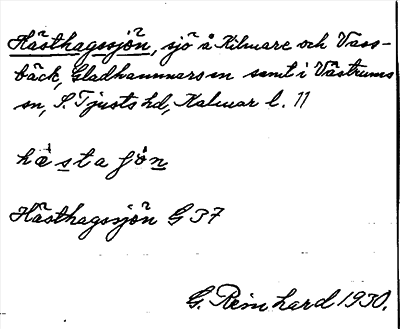 Hästhagssjön, sjö å Kilmare och Vass-
bäck, Gladhammars sn samt i Västrums
sn, S. Tjusts hd, Kalmar l. 11
hästafȯn
Hästhagssjön G 37
G. Reinhard 1930.